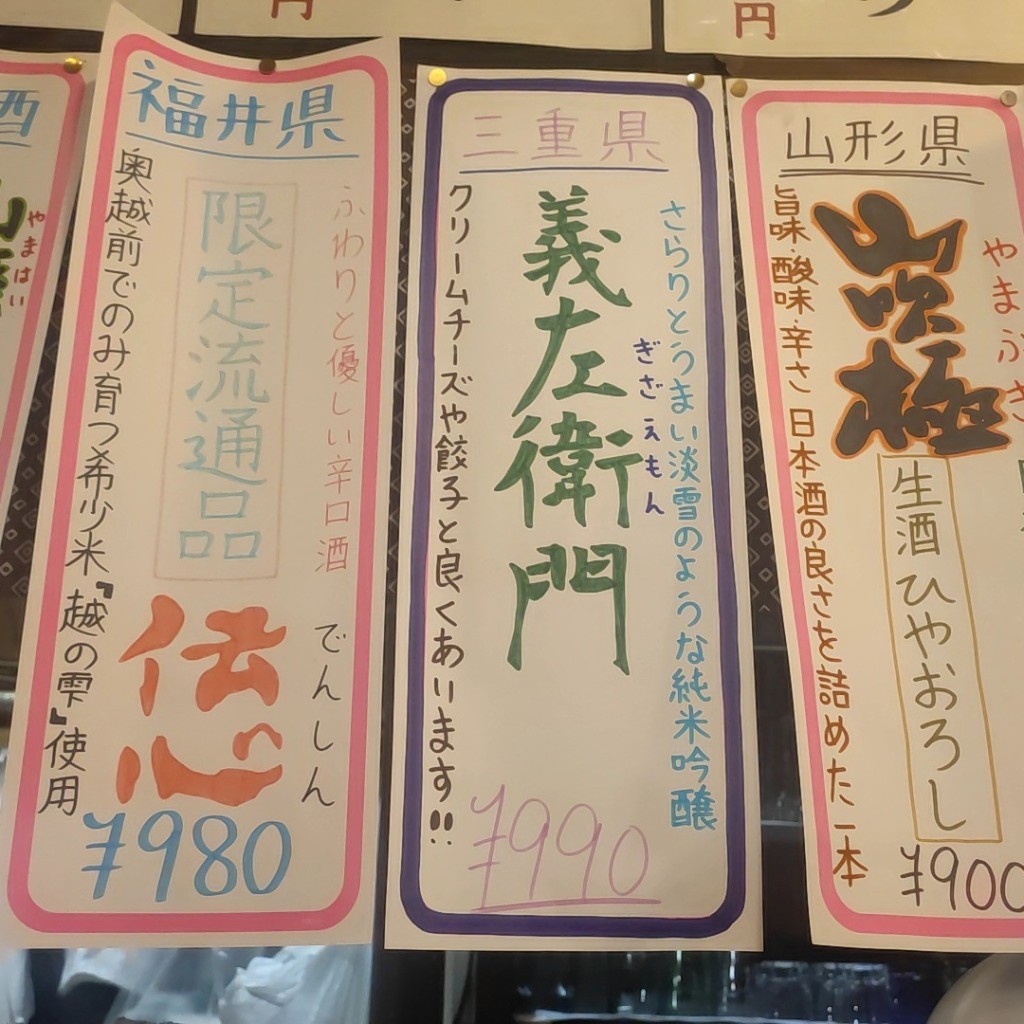 円
円
酒
やまはい
福井県
ふわりと優しい辛口酒
限定流通品
奥越前でのみ育つ希少米『越の雫』使用
伝心
でんしん
¥980
三重県
さらりとうまい淡雪のような純米吟醸
義左衛門
ぎざえもん
クリームチーズや餃子と良くあいます!!
¥990
山形県
やまぶき
山吹極
生酒ひやおろし
旨味・酸味・辛さ 日本酒の良さを詰めた一本
¥900